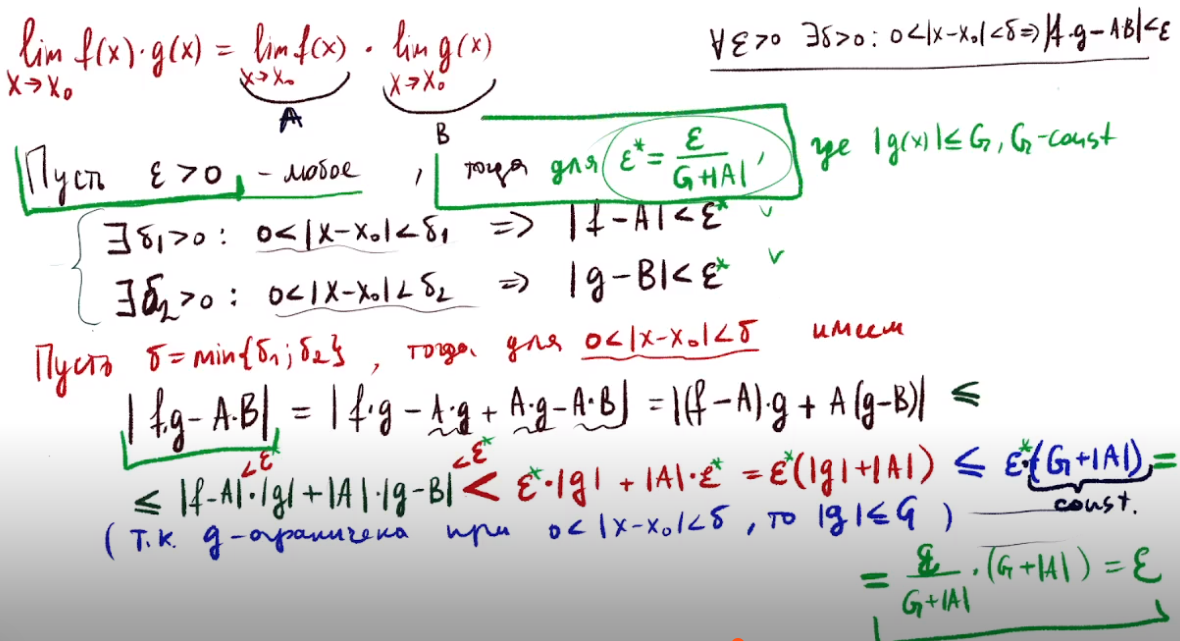 lim f(x)·g(x) = lim f(x) · lim g(x)
x→x₀ x→x₀ x→x₀
A B
∀ε>0 ∃δ>0: 0<|x-x₀|<δ⇒|f·g-AB|<ε
Пусть ε>0, - любое, тогда для ε* = ε/(G+|A|), где |g(x)|≤G, G-const
∃δ₁>0: 0<|x-x₀|<δ₁ ⇒ |f-A|<ε*
∃δ₂>0: 0<|x-x₀|<δ₂ ⇒ |g-B|<ε*
Пусть δ=min{δ₁;δ₂}, тогда для 0<|x-x₀|<δ имеем
|f·g-A·B| = |f·g-A·g+A·g-A·B| = |(f-A)·g+A(g-B)| ≤
<ε* <ε*
≤ |f-A|·|g|+|A|·|g-B| < ε*·|g|+|A|·ε* = ε*(|g|+|A|) ≤ ε*·(G+|A|) =
const.
(т.к. g-ограничена при 0<|x-x₀|<δ, то |g|≤G)
= ε/(G+|A|)·(G+|A|) = ε